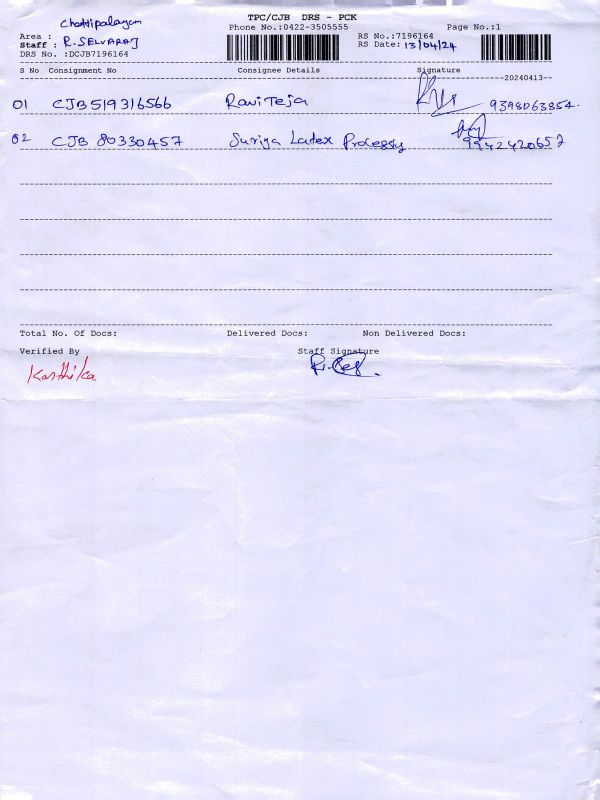 TPC/CJB DRS - PCK
Chettipalayam
Phone No.:0422-3505555
Page No.:1
Area :
RS No.:7196164
Staff : R. SELVARAJ
RS Date: 13/04/24
DRS No. :DCJB7196164
S No Consignment No Consignee Details Signature
20240413
01 CJB519316566 RaviTeja 9398063854.
02 CJB 80330457 Suriya Latex 9942420657
Total No. Of Docs: Delivered Docs: Non Delivered Docs:
Verified By Staff Signature
Karthika